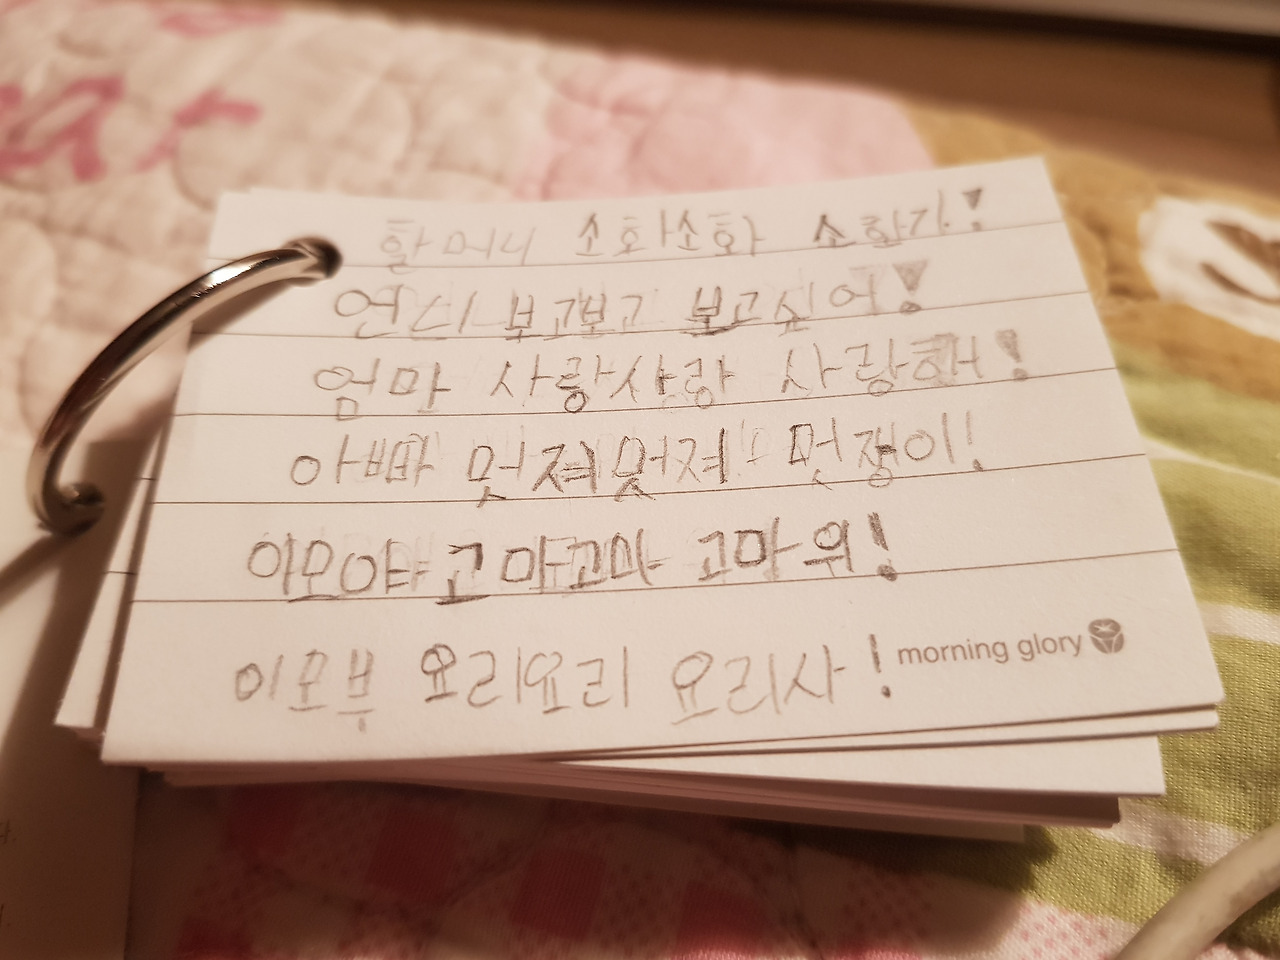 할머니 소화소화 소화기!
언니 보고보고 보고싶어!
엄마 사랑사랑 사랑해!
아빠 멋져멋져 멋쟁이!
이모야 고마고마 고마워!
이모부 요리요리 요리사!
morning glory